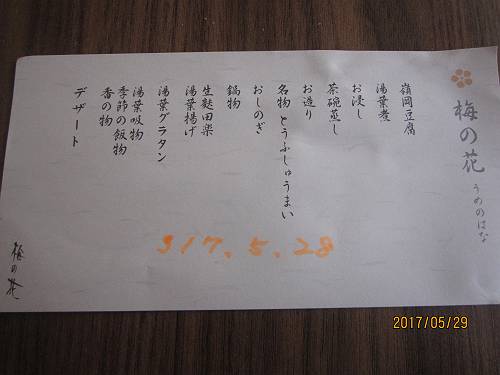 梅の花
うめのはな
嶺岡豆腐
湯葉煮
お浸し
茶碗蒸し
お造り
名物 とうふしゅうまい
おしのぎ
鍋物
生麩田楽
湯葉揚げ
湯葉グラタン
湯葉吸物
季節の飯物
香の物
デザート
317.5.28
梅の花
2017/05/29